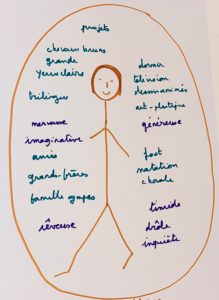 projets
cheveux bruns
grande
yeux clairs
trilingue
nerveuse
imaginative
amis
grands-frères
famille agapes
rêveuse
danser
télévision
dessins animés
art-plastique
généreuse
foot
natation
chorale
timide
drôle
inquiète